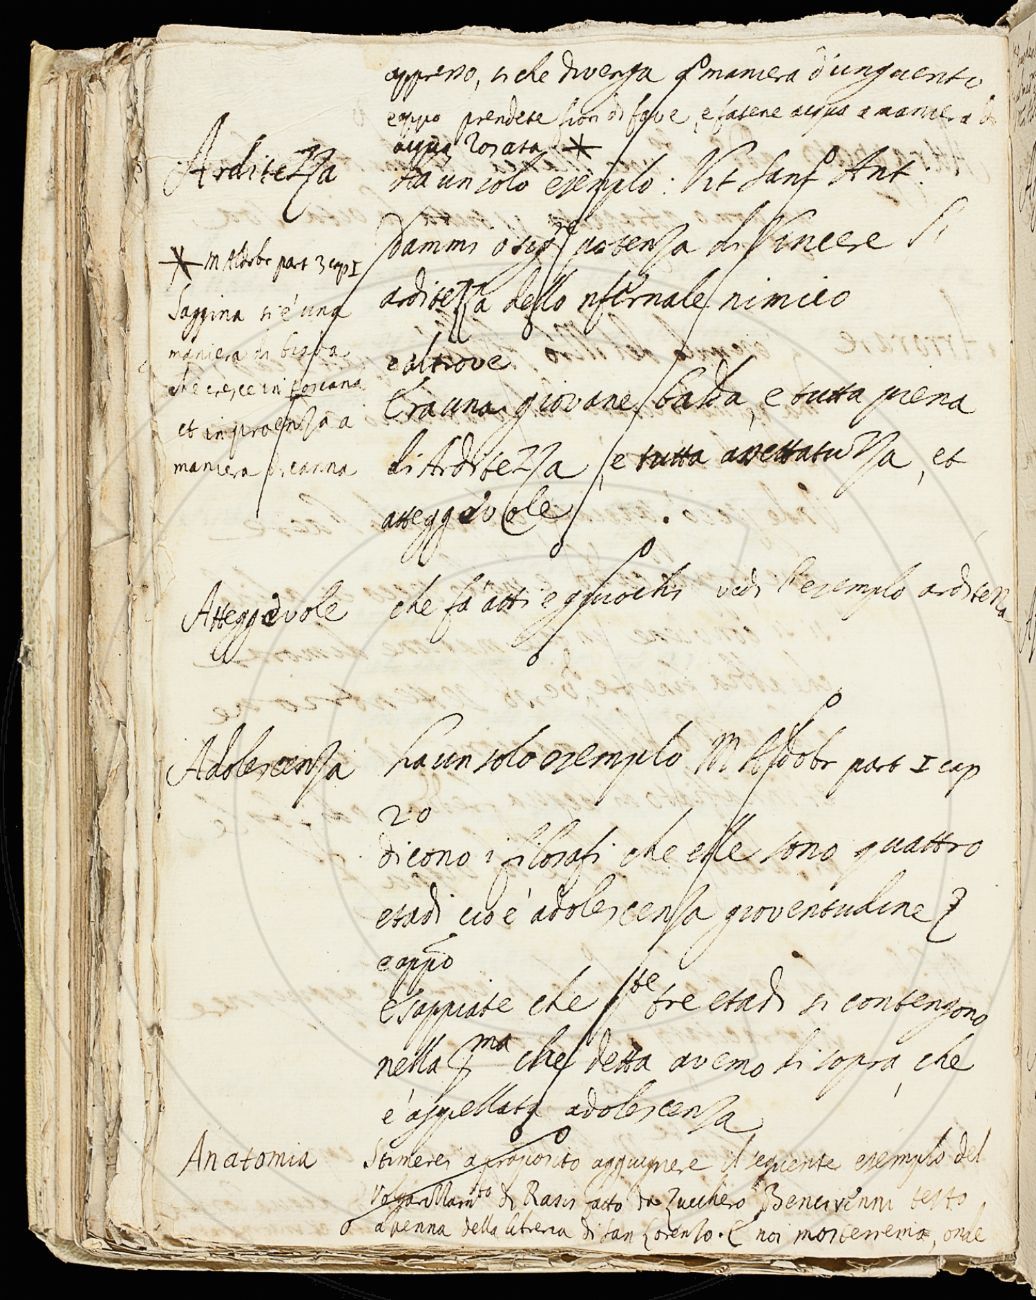 appresso, si che divenga q maniera d'unguento
eappo prendete fiori di fave, e fatene acqua a maniera di
acqua rosata *
Arditezza
ha un solo esempio: Vit Sant Ant.
Dammi o sig potenza di vincere
arditezza dello nfernale nimico
* M Aldobr part 3 cap 1
Saggina si è una
maniera di biada
che cresce in Toscana
et in proenza a
maniera di canna
e altrove
Era una giovane balda, e tutta piena
di Arditezza, e tutta avettatuzza, et
atteggevole.
Atteggevole
che fa atti e giuochi vedi l'esempio arditezza
Adolescenza
ha un solo esempio M Aldobr part I cap
20
dicono i filosafi che elle sono quattro
etadi cioè adolescenza gioventudine
e appo
E sappiate che qte tre etadi si contengono
nella pma che detta avemo di sopra, che
è appellata adolescenza
Anatomia
Stimerei a proposito aggiugnere il seguente esempio del
Volgarizzamto di Rasis fatto da Zucchero Bencivenni testo
a penna della libreria di San Lorenzo. E noi mosterremo, onde